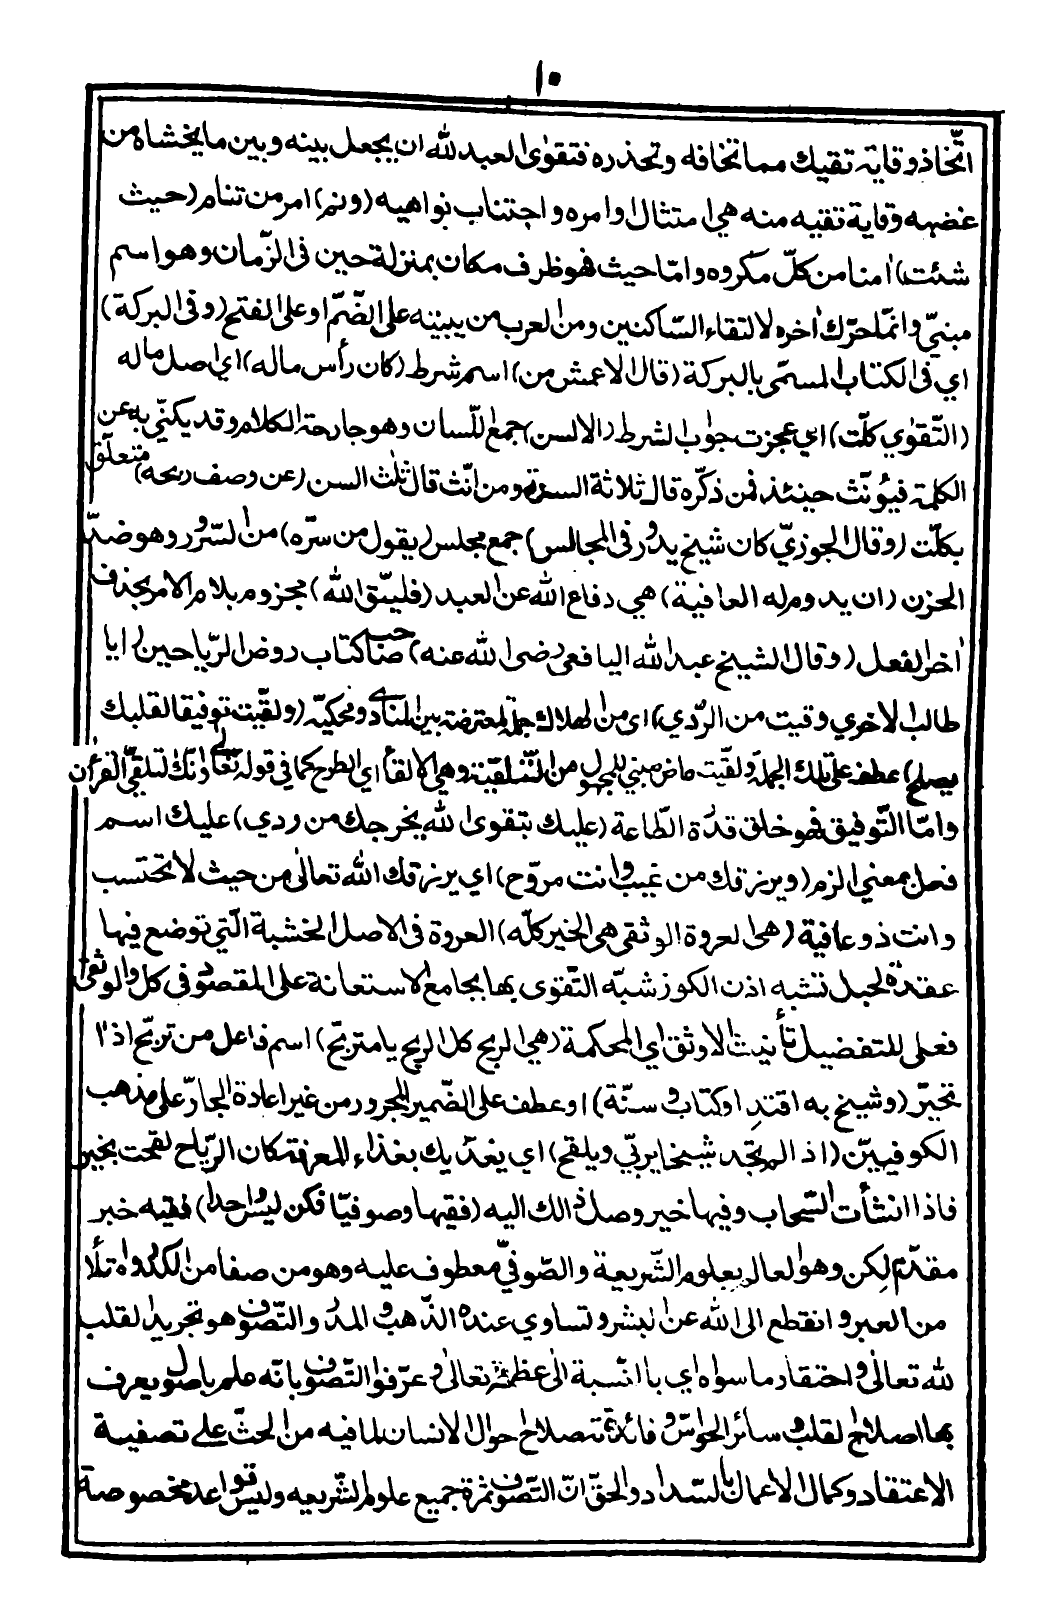 ١٠
اتّخاذ وقاية تقيك مما تخافه وتحذره فتقوى العبد لله ان يجعل بينه وبين ما يخشاه من
غضبه وقاية تقيه منه هي امتثال اوامره واجتناب نواهيه (ونم) امر من تنام (حيث
شئت) اٰمنا من كلّ مكروه وامّا حيث فهو ظرف مكان بمنزلة حين فى الزّمان وهو اسم
مبنيّ وانّما حرّك اٰخره لالتقاء السّاكنين ومن العرب من يبنيه على الضّمّ او على الفتح (وفى البركة)
اي فى الكتاب المسمّى بالبركة (قال الاعمش من) اسم شرط (كان رأس ماله) اي اصل ماله
(التّقوٰي كلّت) اي عجزت جواب الشرط (الالسن) جمع اللّسان وهو جارحة الكلام وقد يكنّي به عن
الكلمة فيؤنّث حينئذ فمن ذكّره قال ثلاثة السنة ومن انّث قال ثلٰث السن (عن وصف ربحه) متعلّق
بكلّت (وقال الجوزيّ كان شيخ يدور فى المجالس) جمع مجلس (يقول من سرّه) من السّرور وهو ضدّ
الحزن (ان يدوم له العافية) هي دفاع الله عن العبد (فليتّق الله) مجزوم بلام الامر بحذف
اٰخر الفعل (وقال الشيخ عبد الله اليافعى رضى الله عنه) صاحب كتاب روض الرّياحين (ايا
طالب الاخري وقيت من الرّدي) اى من الهلاك جملة معترضة بين المنادى ومحكيّه (ولقّيت توفيقا لقلبك
يصلح) عطف على تلك الجملة ولقّيت ماض مبني للمجهول من التّلقية وهي الالقاء اي الطرح كما في قوله تعالى وانّك لتلقّى القراٰن
وامّا التّوفيق فهو خلق قدرة الطّاعة (عليك بتقوى الله يخرجك من ردي) عليك اسم
فعل بمعني الزم (ويرزقك من غيب وانت مروّح) اي يرزقك الله تعالى من حيث لا تحتسب
وانت ذو عافية (هى العروة الوثقى هى الخير كلّه) العروة فى الاصل الخشبة الّتي توضع فيها
عقدة الحبل تشبه اذن الكوز شبّه التّقوى بها بجامع الاستعانة على المقصود فى كل والوثقى
فعلى للتفضيل تأنيث الاوثق اي المحكمة (هي الربح كل الربح يا متربّح) اسم فاعل من تربّح اذا
تخيّر (وشيخ به اقتدِ او كتاب وسنّة) او عطف على الضّمير المجرور من غير اعادة الجارّ على مذهب
الكوفيين (اذا لم تجد شيخا يربّي ويلقح) اي يغذّيك بغذاء المعرفة كان الرّياح لقحت بخير
فاذا انشأت السّحاب وفيها خير وصل ذالك اليه (فقيها وصوفيّا فكن ليس واحدا) فقيه خبر
مقدّم لكن وهو العالم بعلوم الشّريعة والصّوفيّ معطوف عليه وهو من صفا من الكدر وامتلأ
من العبر وانقطع الى الله عن البشر وتساوي عنده الذّهب والمدر والتّصوف هو تجريد القلب
لله تعالٰى واحتقار ما سواه اي بالنّسبة الى عظمته تعالى وعرّفوا التصوف بانّه علم باصول يعرف
بها اصلاح القلب وسائر الحواسّ وفائدته صلاح احوال الانسان لما فيه من الحثّ على تصفية
الاعتقاد وكمال الاعمال بالسّداد والحقّ انّ التّصوف ثمرة جميع علوم الشّريعه وليس قواعد مخصوصة